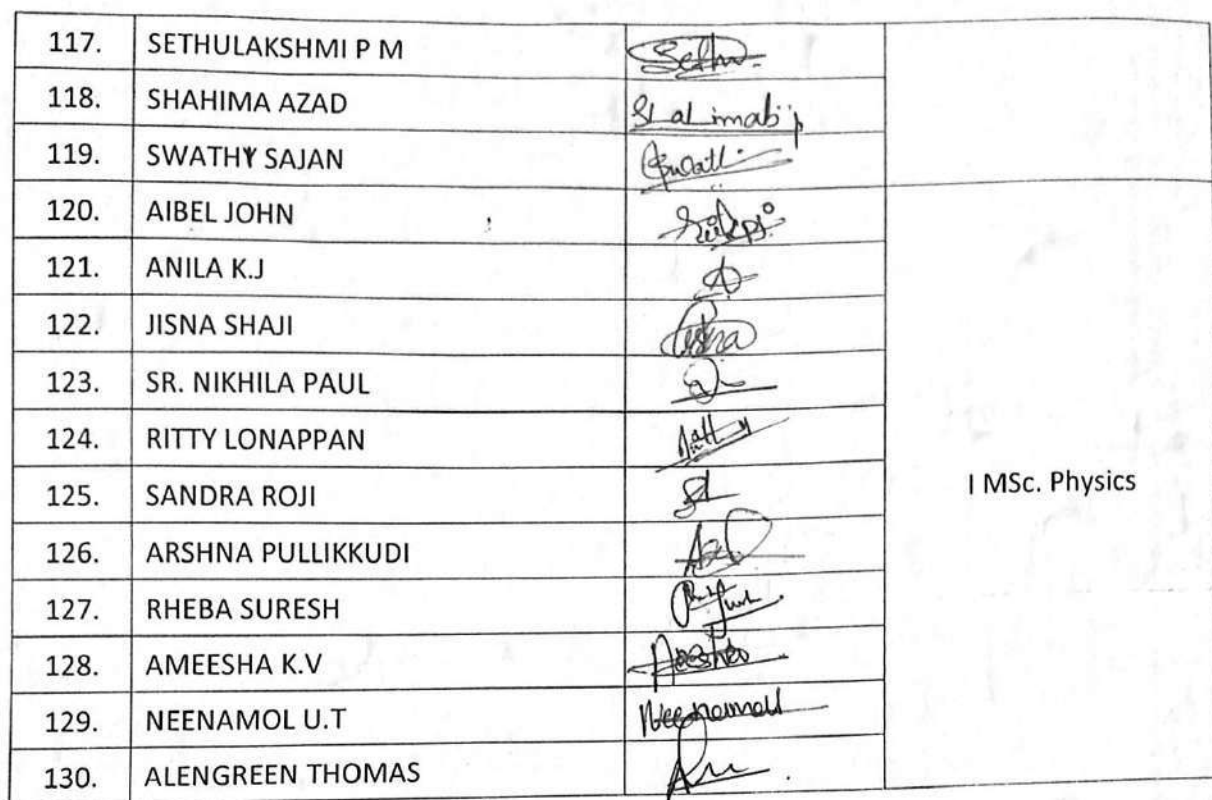 117. SETHULAKSHMI P M Sethu
118. SHAHIMA AZAD
119. SWATHY SAJAN Swathi
120. AIBEL JOHN
121. ANILA K.J
122. JISNA SHAJI
123. SR. NIKHILA PAUL
124. RITTY LONAPPAN
125. SANDRA ROJI
I MSc. Physics
126. ARSHNA PULLIKKUDI
127. RHEBA SURESH
128. AMEESHA K.V
129. NEENAMOL U.T Neenamol
130. ALENGREEN THOMAS